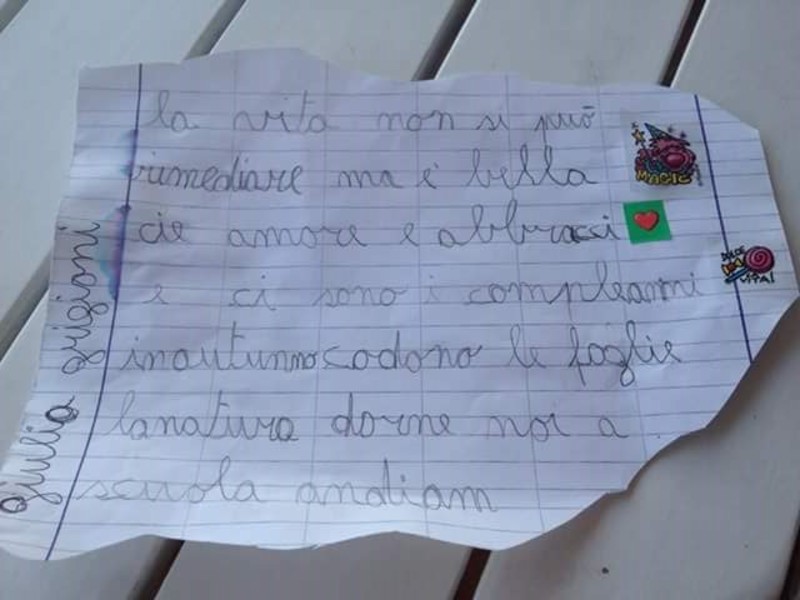 la vita non si può
rimediare ma è bella
cie amore e abbracci
e ci sono i compleanni
inautunno cadono le foglie
lanatura dorme noi a
scuola andiam
giulia grigioni
MAGIC
DOLCE
VITA!